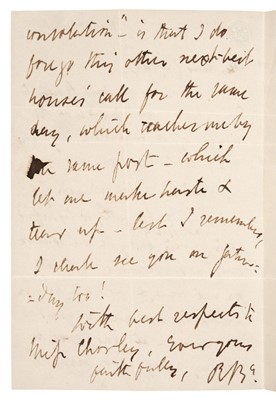 consolation" - is that I do
forego this other next-best
house's call for the same
day, which reaches me by
same post - which
let me make haste &
tear up - lest I remember,
I shall see you on Satur-
=day too!
With best respects to
Miss Chorley, Ever yours
faithfully, RB.